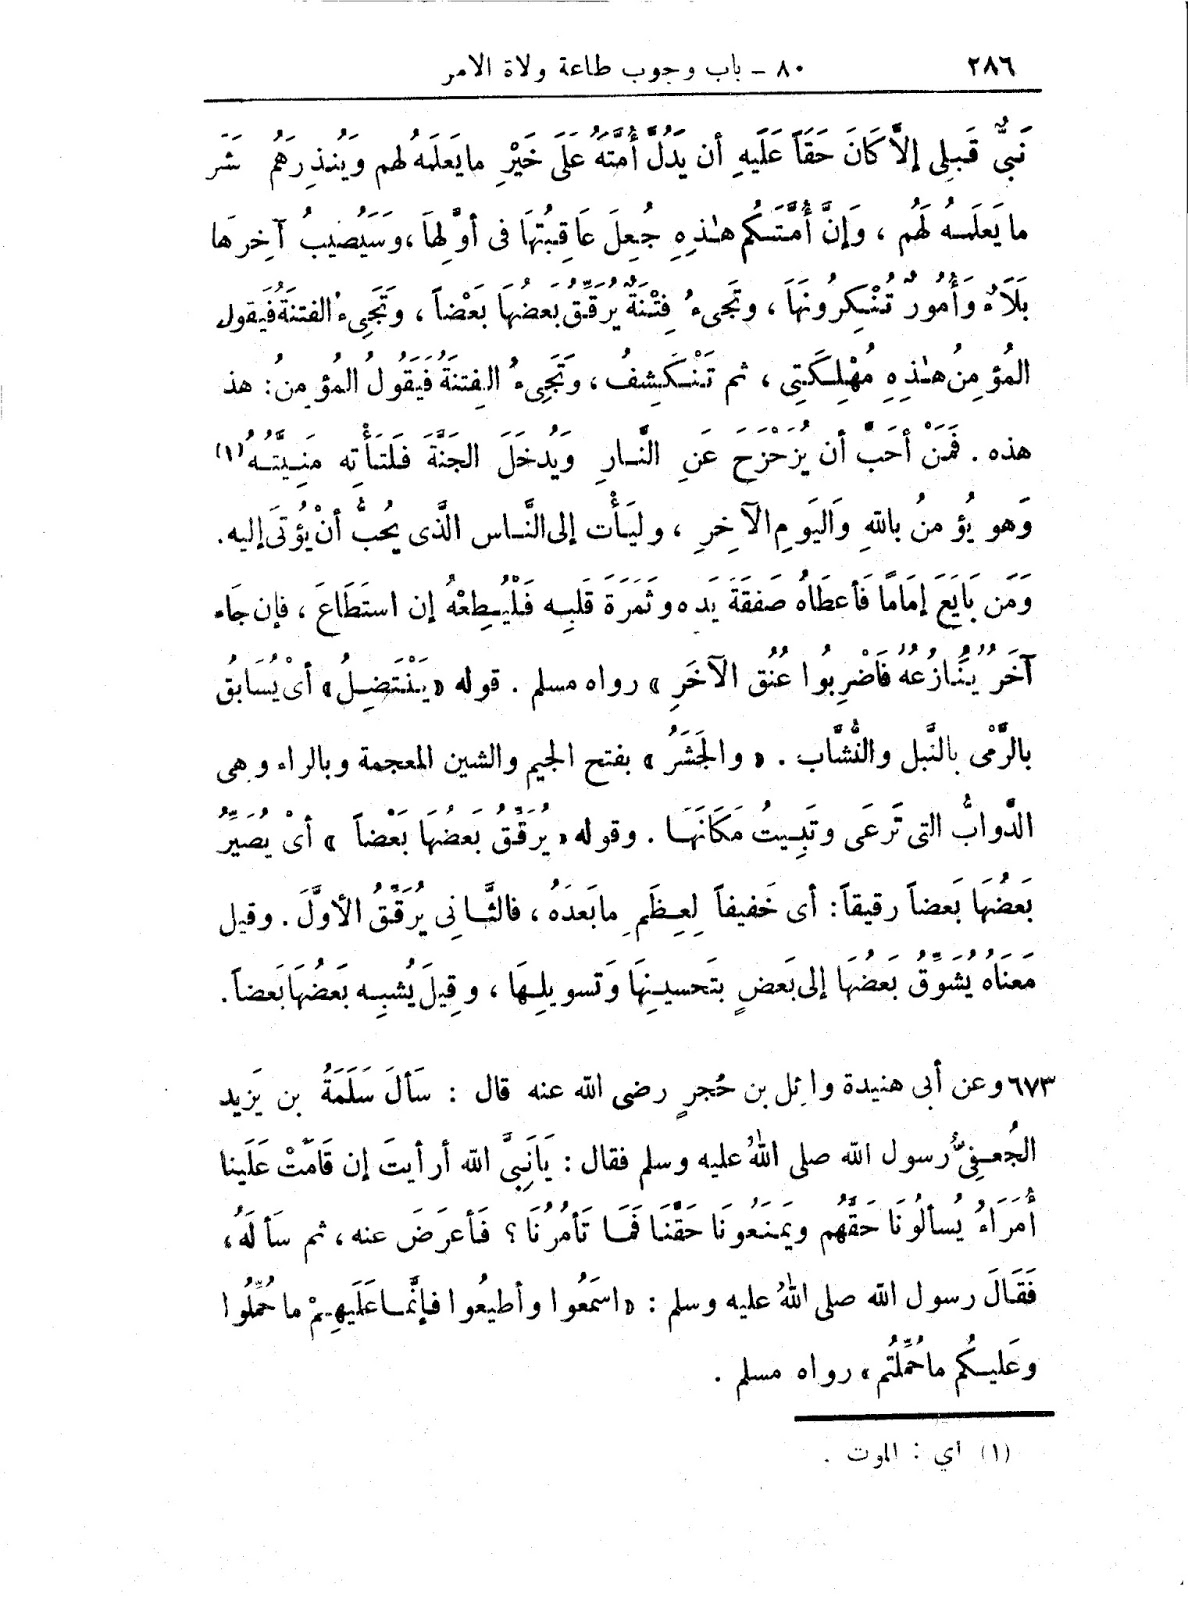 ٢٨٦ ٨٠ - باب وجوب طاعة ولاة الامر
نَبِيٌّ قَبلِى إلاَّ كَانَ حَقاً عَلَيهِ أن يَدُلَّ أُمَّتَهُ عَلَى خَيْرِ ما يَعلَمهُ لهم وَيُنذِرَهُم شَر
ما يَعلَمهُ لَهُم ، وَإنَّ أُمَّتَكُم هٰذِهِ جُعِلَ عَاقِبتُهَا فى أوَّلِهَا ، وَسَيُصيبُ آخِرهَا
بَلَاءٌ وَأُمُورٌ تُنْكِرُونَهَا ، وتَجىءُ فِتْنَةٌ يُرَقِّقُ بَعضُهَا بَعْضاً ، وَتَجِىءُ الفتنَةُ فَيَقول
المُؤمِنُ هٰذِهِ مُهْلِكَتِى ، ثم تَنْكَشِفُ ، وَتَجِىءُ الفِتنَةُ فَيَقُولُ المُؤمِنُ : هذ
هذه . فَمَنْ أحَبَّ أن يُزَحْزَحَ عَنِ النَّارِ وَيُدخَلَ الجَنَّةَ فَلتَأْتِه مَنِيَّتُهُ (١)
وَهو يُؤمنُ بالله وَاليَومِ الآخِرِ ، وليَأْت إلى النَّاس الَّذى يُحبُّ أنْ يُؤتَى إليه .
وَمَن بَايَعَ إمَامًا فَأعطَاهُ صَفقَةَ يَده وثَمَرَةَ قَلبِه فَلْيُطِعْهُ إن استَطَاعَ ، فإن جَاء
آخَرُ يُنَازعُهُ فَاضْرِبُوا عُنُق الآخَرِ » رواه مسلم . قوله « يَنْتَضِلُ » أىْ يُسَابقُ
بالرَّمْى بالنَّبل والنُّشَّاب . « والجَشَرُ » بفتح الجيم والشين المعجمة وبالراء وهى
الدَّوابُّ التى تَرعَى وتَبِيتُ مَكَانَهَا . وقوله « يُرَقِّقُ بَعضُهَا بَعْضاً » أىْ يُصَيِّرُ
بَعضُهَا بَعضاً رقيقاً : أى خَفيفاً لِعِظَمِ ما بَعدَهُ ، فالثَّانِى يُرَقِّقُ الأوَّلَ . وقيل
مَعنَاهُ يُشَوِّقُ بَعضُهَا إلى بَعضٍ بتَحسينِهَا وَتَسويلِهَا ، وقِيلَ يُشبِه بَعضُهَا بَعضاً .
٦٧٣ وعن أبى هنيدة وائل بن حُجرٍ رضى الله عنه قال : سَألَ سَلَمَةُ بن يَزيد
الجُعفِىُّ رسول الله صلى اللهُ عليه وسلم فقال : يَانَبِىَّ الله أرأيتَ إن قَامَتْ عَلَينا
أُمَرَاءُ يُسألُونَا حَقَّهُم ويَمنَعُونَا حَقَّنَا فَمَا تَأمُرُنَا ؟ فَأعرَضَ عنه ، ثم سَألَهُ ،
فَقَالَ رسول الله صلى اللهُ عليه وسلم : « اسمَعُوا وأطيعُوا فإنَّما عَلَيهِمْ ما حُمِّلُوا
وعَليكُم ما حُمِّلتُم » رواه مسلم .
(١) اي : الموت .